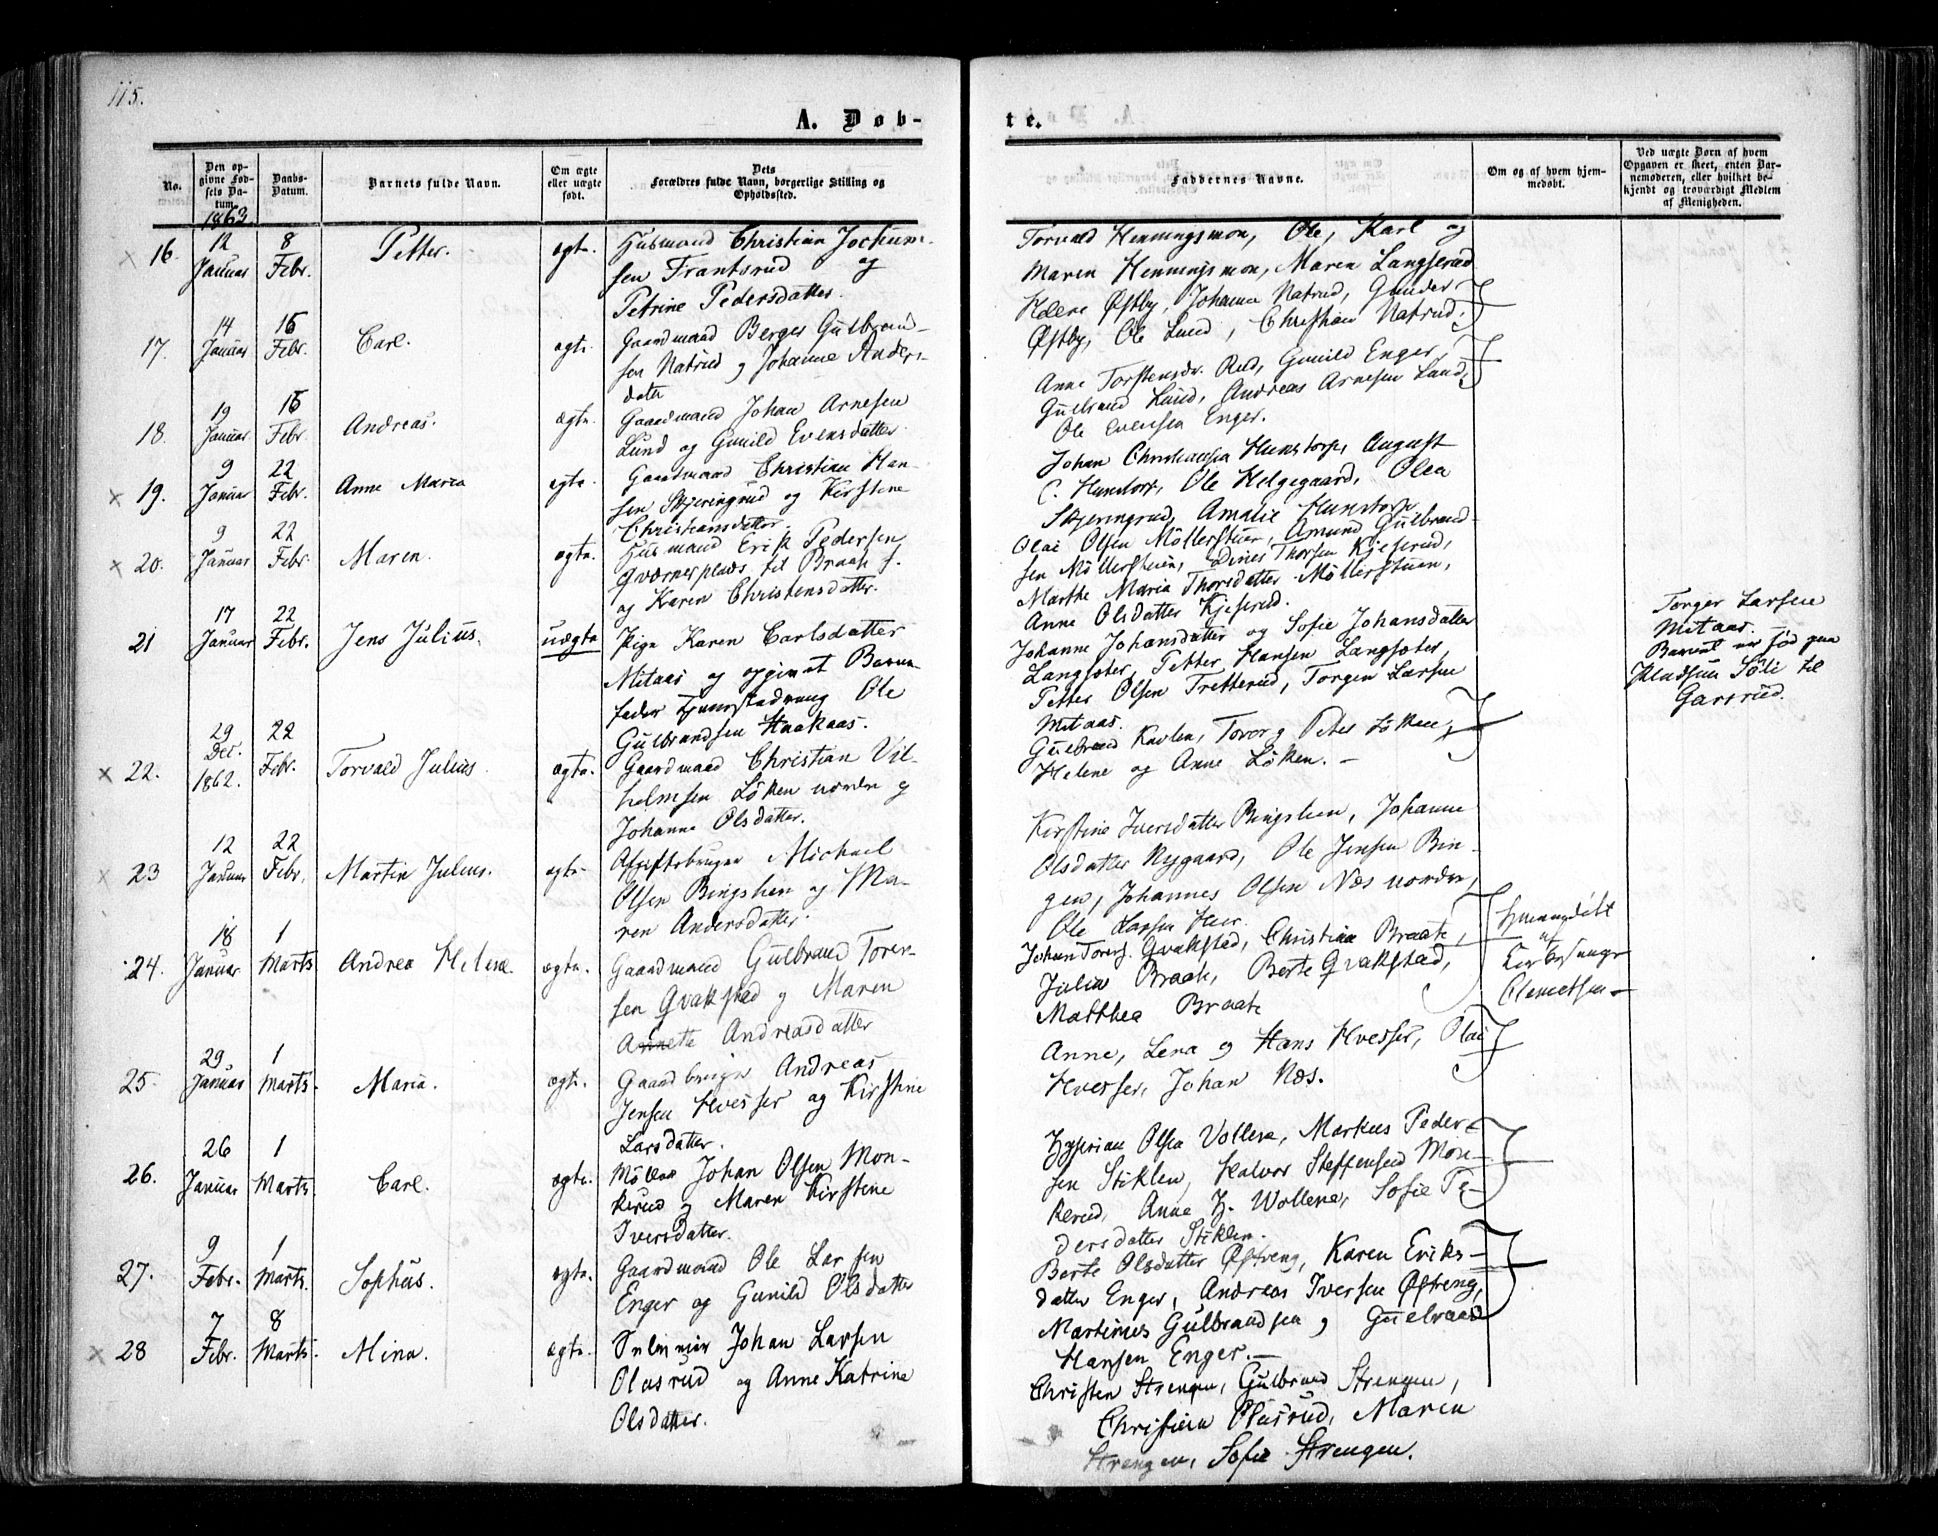 115.
A. Døb-
te.
No.
Den op-
givne Fød-
sels Da-
tum.
Daabs-
Datum.
Barnets fulde Navn.
Om ægte
eller uægte
født.
Dets
Forældres fulde Navn, borgerlige Stilling og
Opholdssted.
Faddernes Navne.
Om og af hvem hjem-
medøbt.
Ved uægte Børn af hvem
Opgaven er skeet, enten Bar-
nemoderen, eller hvilket be-
kjendt og troværdigt Medlem
af Menigheden.
1863
16. 12 Januar 8 Febr. Petter. ægte.
Husmand Christian Jochum-
sen Frantsrud og
Petrine Pedersdatter.
Torvald Henningsmon, Ole, Karl og
Maren Henningsmon, Maren Langserud
17. 14 Januar 15 Febr. Carl. ægte.
Gaardmand Berger Gulbrand-
sen Natrud og Johanne Anders-
datter
Helene Østby, Johanne Natrud, Gunder
Østby, Ole Lund, Christian Natrud.
18. 19 Januar 15 Febr. Andreas. ægte.
Gaardmand Johan Arnesen
Lund og Gunild Evensdatter.
Anne Torstensdr. Rud, Gunild Enger,
Gulbrand Lund, Andreas Arnesen Lund,
Ole Evensen Enger.
19. 9 Januar 22 Febr. Anne Maria ægte.
Gaardmand Christian Han-
sen Skjeringrud og Kirstine
Christiansdatter.
Johan Christiansen Hunstorp, August
C. Hunstorp, Ole Helgegaard, Olea
Skjeringrud, Amalie Hunstorp
20. 9 Januar 22 Febr. Maren. ægte.
Husmand Erik Pedersen
Qværnesplads til Braate
og Karen Christensdatter.
Olai Olsen Möllerstuen, Amund Gulbrand-
sen Möllerstuen, Dines Thorsen Kjeserud,
Marthe Maria Thorsdatter Möllerstuen,
Anne Olsdatter Kjeserud.
21 17 Januar 22 Febr. Jens Julius. uægte
Pige Karen Carlsdatter
Mitaas og opgivet Barne-
fader Ole
Gulbrandsen Haakaas.
Johanne Johansdatter og Sofie Johansdatter
Langsæter, Petter Hansen Langsæter,
Petter Olsen Tretterud, Torger Larsen
Mitaas.
Torger Larsen
Mitaas.
Barnet er fød paa
Pladsen til
Garsrud.
22. 29 Dec. 1862. 22 Febr. Torvald Julius. ægte.
Gaardmand Christian Vil-
helmsen Löken nordre og
Johanne Olsdatter.
Gulbrand Kavlen, Tover og Peter Löken,
Helene og Anne Löken.
23 12 Januar 22 Febr. Martin Julius. ægte.
Afgiftsbruger Michael
Olsen Bingshen og Ma-
ren Andersdatter.
Kirstine Iversdatter Bingshen, Johanne
Olsdatter Nygaard, Ole Jensen Bin-
gen, Johannes Olsen Næs nordre,
Ole Hansen Heer.
24. 18 Januar 1 Marts Andrea Helene. ægte.
Gaardmand Gulbrand Torer-
sen Qvakstad og Maren
Annette Andreasdatter
Johan Torers. Qvakstad, Christine Braate,
Julia Braate, Berte Qvakstad,
Matthea Braate
hjemmedöbt
af
Kirkesanger
Clemetsen
25. 29 Januar 1 Marts. Maria. ægte.
Gaardbruger Andreas
Jensen Hvesser og Kirstine
Larsdatter.
Anne, Lena og Hans Hvesser, Olai
Hvesser, Johan Næs.
26. 26 Januar 1 Marts. Carl. ægte.
Möller Johan Olsen Mon-
kerud og Maren Kirstine
Iversdatter.
Zyprian Olsen Vollene, Markus Peder-
sen Stiklen, Halvor Steffensen Mon-
kerud, Anne Z. Wollene, Sofie Pe-
dersdatter Stiklen.
27. 9 Febr. 1 Marts. Sophus. ægte.
Gaardmand Ole Larsen
Enger og Gunild Olsdatter
Berte Olsdatter Østreng, Karen Eriks-
datter Enger, Andreas Iversen Østreng,
Martinus Gulbrandsen og Gulbrand
Hansen Enger.
28 7 Febr. 8 Marts. Mina. ægte.
Selveier Johan Larsen
Olasrud og Anne Katrine
Olsdatter.
Christen Strengen, Gulbrand Strengen,
Christian Olasrud, Maren
Strengen, Sofie Strengen.